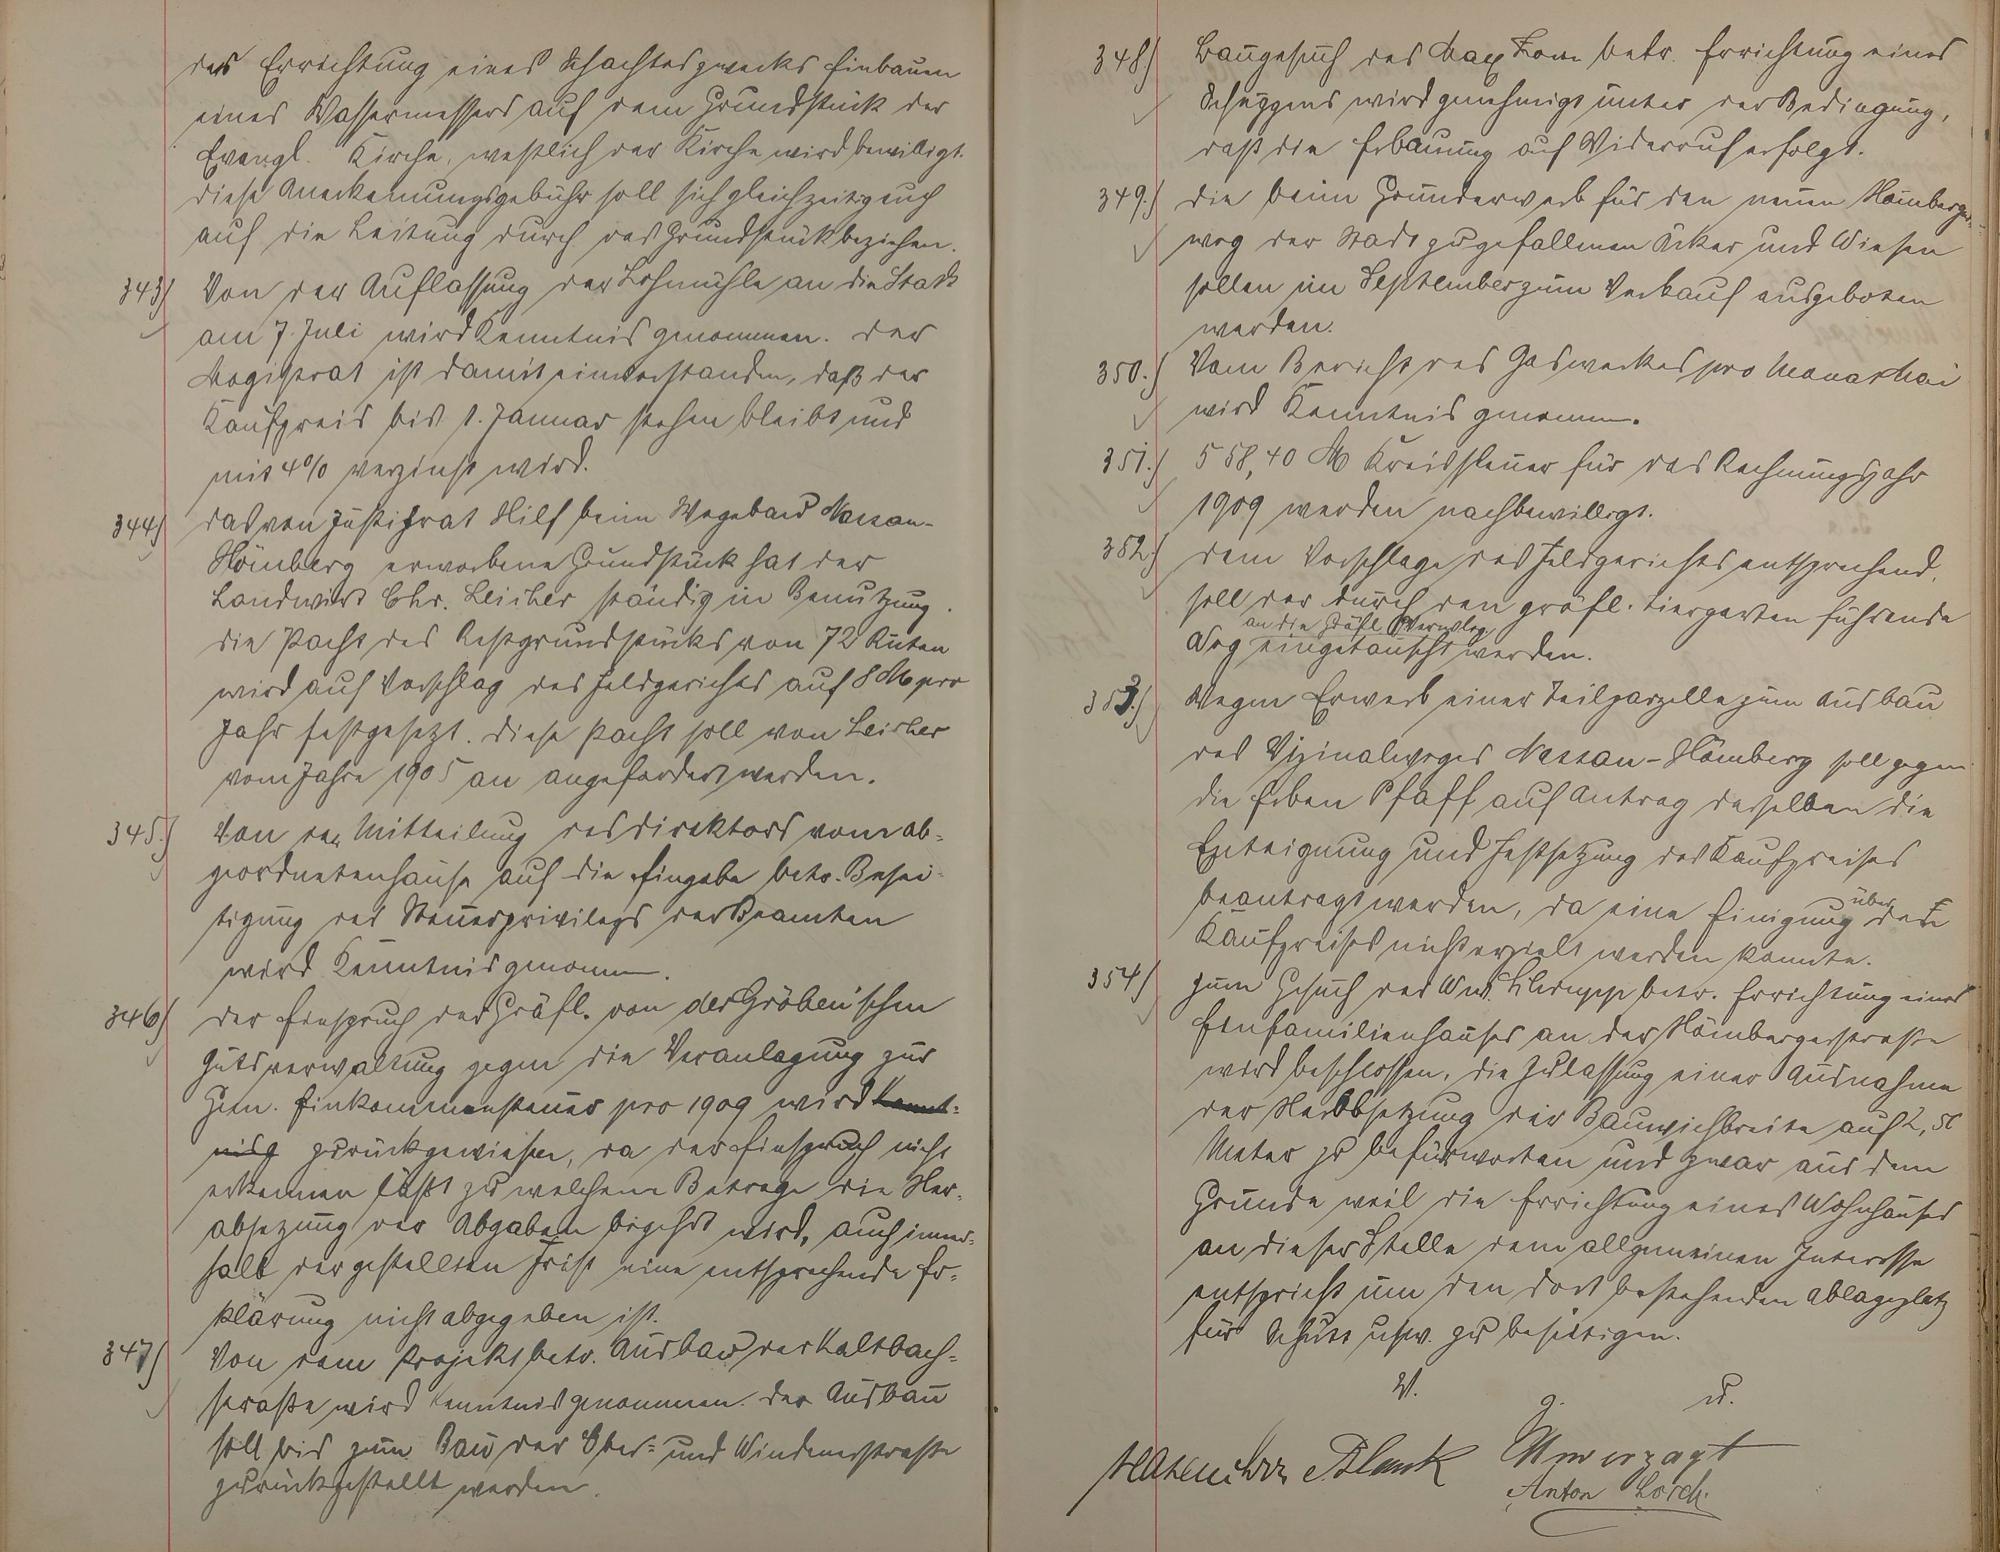 der Errichtung eines Schachtes zwecks Einbauen
eines Wassermessers auf dem Grundstück der
Evangl. Kirche, westlich der Kirche wird bewilligt.
diese Anerkennungsgebühr soll sich gleichzeitig auch
auf die Leitung durch das Grundstück beziehen.
343) Von der Auflassung der Lohmühle an die Stadt
am 7. Juli wird Kenntnis genommen. Der
Magistrat ist damit einverstanden, daß der
Kaufpreis bis 1. Januar stehen bleibt und
mit 4% verzinst wird.
344) das von Justizrat Hilf beim Wegebau Nassau-
Hömberg erworbene Grundstück hat der
Landwirt Chr. Leicher ständig in Benutzung.
die Pacht des Restgrundstücks von 72 Ruten
wird auf Vorschlag des Feldgerichts auf 8 M pro
Jahr festgesetzt. diese Pacht soll von Leicher
vom Jahre 1905 an angefordert werden.
345.) Von der Mitteilung des direktors vom ab-
geordnetenhause auf die Eingabe betr. Besei-
tigung des Steuerprivilegs der Beamten
wird Kenntnis genommen.
346) der Einspruch der Gräfl. von der Gröben'schen
Gutsverwaltung gegen die Veranlagung zur
Gem. Einkommensteuer pro 1909 wird Kennt-
nis g zurückgewiesen, da der Einspruch nicht
erkennen läßt zu welchem Betrage die Her-
absetzung der Abgaben begehrt wird, auch inner-
halb der gestellten Frist eine entsprechende Er-
klärung nicht abgegeben ist.
347) Von dem Projekt betr. Ausbau der Kaltbach-
straße wird Kenntnis genommen. der Ausbau
soll bis zum Bau der Ober- und Windenerstraße
zurückgestellt werden.
348) Baugesuch des Max betr. Errichtung eines
Schuppens wird genehmigt unter der Bedingung,
daß die Erbauung auf Widerruf erfolgt.
349.) die beim Grunderwerb für den neuen Hömberger-
weg der Stadt zugefallenen Äcker und Wiesen
sollen im September zum Verkauf ausgeboten
werden.
350.) Vom Bericht des Gaswerkes pro Monat Mai
wird Kenntnis genommen.
351.) 558,40 M Kreissteuer für das Rechnungsjahr
1909 werden nachbewilligt.
352.) dem Vorschlage des Feldgerichts entsprechend,
soll der durch den gräfl. Tiergarten führende
an die Gräfl. Verwltg
Weg eingetauscht werden.
353.) Wegen Erwerb einer Teilparzelle zum Ausbau
des Vizinalweges Nassau-Hömberg soll gegen
die Erben Pfaff auf Antrag derselben die
Enteignung und Festsetzung des Kaufpreises
beantragt werden, da eine Einigung über den
Kaufpreises nicht erzielt werden konnte.
354) Zum Gesuch des Wwe. betr. Errichtung eines
Einfamilienhauses an der Hömbergerstraße
wird beschlossen, die Zulassung einer Ausnahme
der Herabsetzung der Bauwichbreite auf 2,50
Meter zu befürworten und zwar aus dem
Grunde weil die Errichtung eines Wohnhauses
an dieser Stelle dem allgemeinen Interesse
entspricht um den dort bestehenden Ablageplatz
für Schutt usw. zu beseitigen.
V. g. u.
Hasenclever Blank Unverzagt
Anton Lorch.